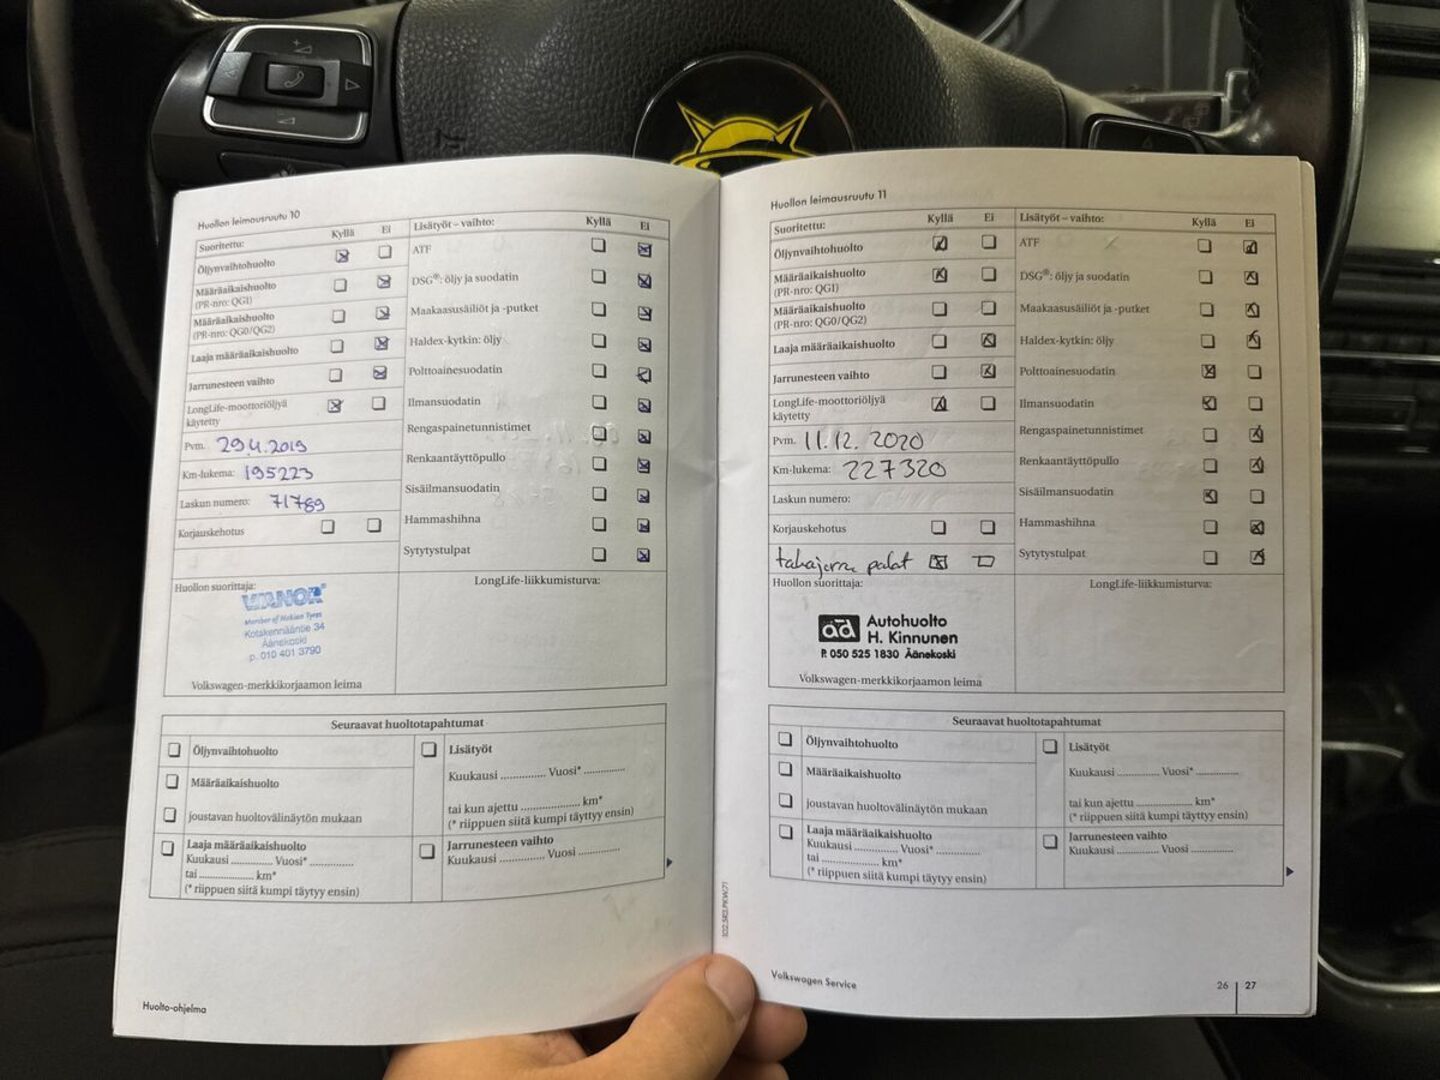 Huollon leimausruutu 10
Suoritettu: Kyllä Ei
Öljynvaihtohuolto
Määräaikaishuolto
(PR-nro: QG1)
Määräaikaishuolto
(PR-nro: QG0/QG2)
Laaja määräaikaishuolto
Jarrunesteen vaihto
LongLife-moottoriöljyä
käytetty
Pvm. 29.4.2019
Km-lukema: 195223
Laskun numero: 71789
Korjauskehotus
Huollon suorittaja:
VIANOR®
Member of Nokian Tyres
Kotakennääntie 34
Äänekoski
p. 010 401 3790
Volkswagen-merkkikorjaamon leima
Lisätyöt – vaihto: Kyllä Ei
ATF
DSG®: öljy ja suodatin
Maakaasusäiliöt ja -putket
Haldex-kytkin: öljy
Polttoainesuodatin
Ilmansuodatin
Rengaspainetunnistimet
Renkaantäyttöpullo
Sisäilmansuodatin
Hammashihna
Sytytystulpat
LongLife-liikkumisturva:
Seuraavat huoltotapahtumat
Öljynvaihtohuolto
Määräaikaishuolto
joustavan huoltovälinäytön mukaan
Laaja määräaikaishuolto
Kuukausi .............. Vuosi* ..............
tai .................... km*
(* riippuen siitä kumpi täytyy ensin)
Lisätyöt
Kuukausi .............. Vuosi* ..............
tai kun ajettu .................... km*
(* riippuen siitä kumpi täyttyy ensin)
Jarrunesteen vaihto
Kuukausi .............. Vuosi ..............
Huolto-ohjelma
102.5R2.PKW.71
Huollon leimausruutu 11
Suoritettu: Kyllä Ei
Öljynvaihtohuolto
Määräaikaishuolto
(PR-nro: QG1)
Määräaikaishuolto
(PR-nro: QG0/QG2)
Laaja määräaikaishuolto
Jarrunesteen vaihto
LongLife-moottoriöljyä
käytetty
Pvm. 11.12.2020
Km-lukema: 227320
Laskun numero:
Korjauskehotus
takajarru palat
Huollon suorittaja:
ad Autohuolto
H. Kinnunen
P. 050 525 1830 Äänekoski
Volkswagen-merkkikorjaamon leima
Lisätyöt – vaihto: Kyllä Ei
ATF
DSG®: öljy ja suodatin
Maakaasusäiliöt ja -putket
Haldex-kytkin: öljy
Polttoainesuodatin
Ilmansuodatin
Rengaspainetunnistimet
Renkaantäyttöpullo
Sisäilmansuodatin
Hammashihna
Sytytystulpat
LongLife-liikkumisturva:
Seuraavat huoltotapahtumat
Öljynvaihtohuolto
Määräaikaishuolto
joustavan huoltovälinäytön mukaan
Laaja määräaikaishuolto
Kuukausi .............. Vuosi* ..............
tai .................... km*
(* riippuen siitä kumpi täytyy ensin)
Lisätyöt
Kuukausi .............. Vuosi* ..............
tai kun ajettu .................... km*
(* riippuen siitä kumpi täyttyy ensin)
Jarrunesteen vaihto
Kuukausi .............. Vuosi ..............
Volkswagen Service
26 | 27